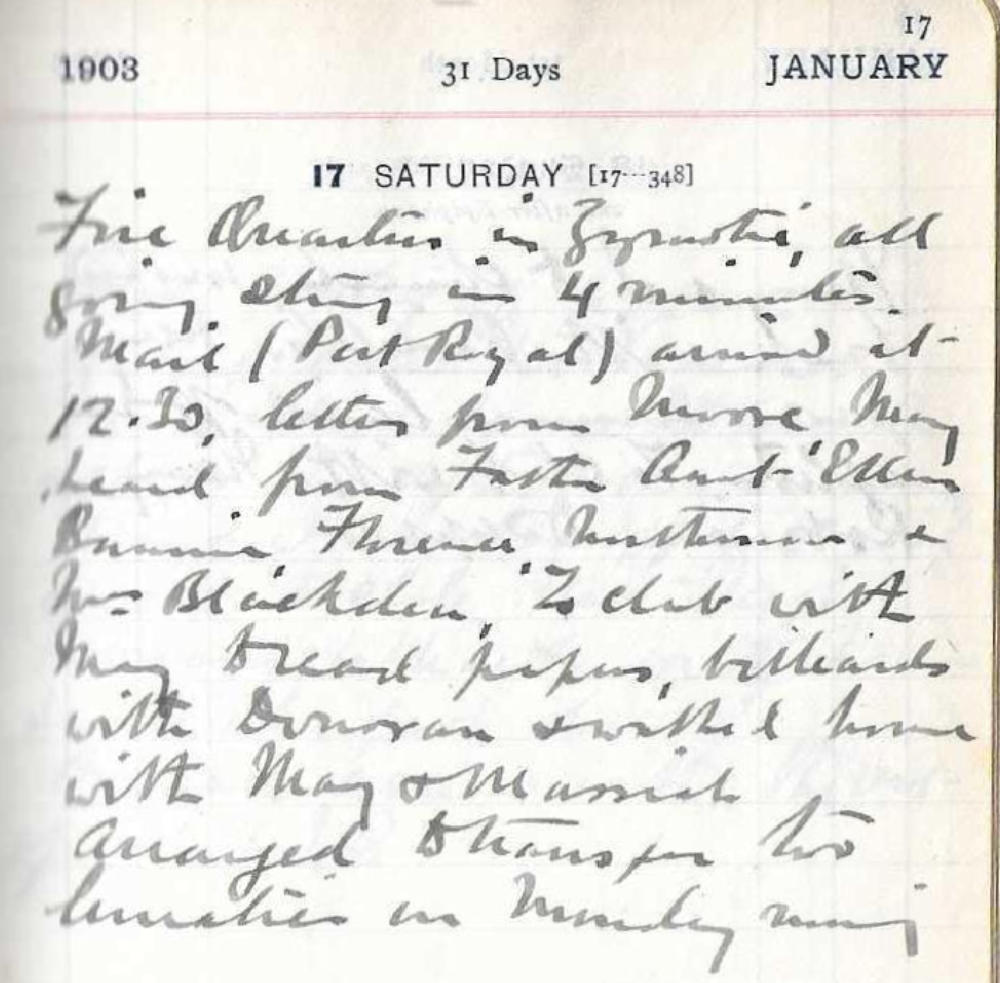 17
1903 31 Days JANUARY
17 SATURDAY [17---348]
Fire Quarters in all
going strong in 4 minutes.
Mail (Port Royal) arrived at
12.30, letter from Moore May
heard from Father Aunt Ellen
Florence &
Mrs Blackden, To club with
May to read papers, billiards
with Donovan & walked home
with May &
Arranged to transfer two
lunatics on Monday